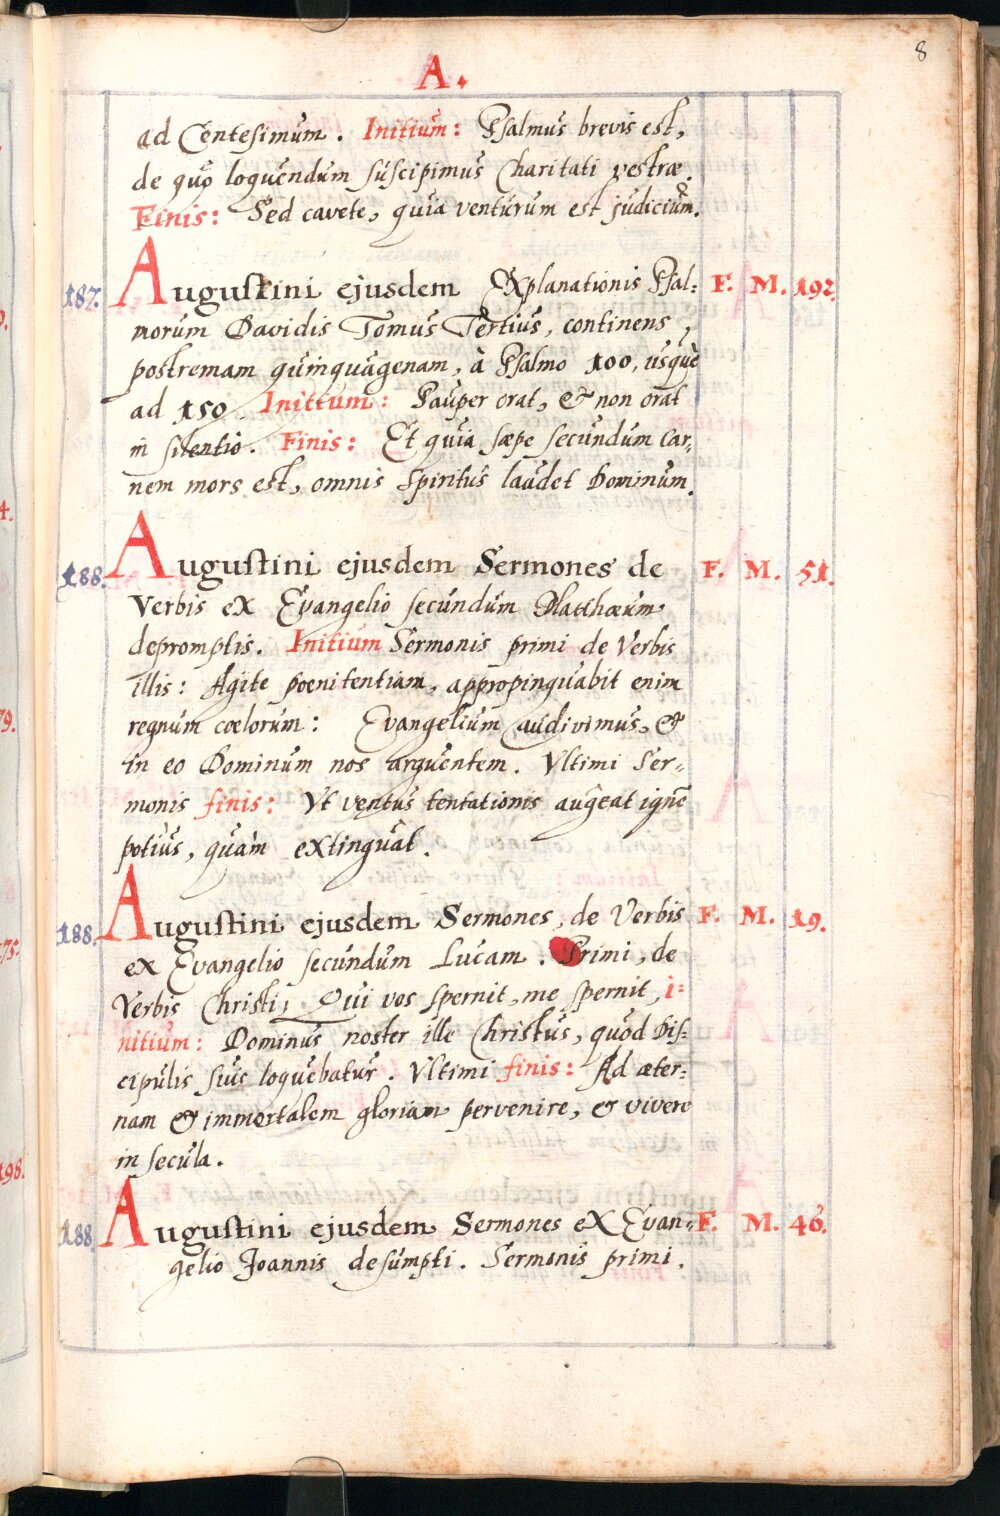 8
A.
ad Centesimum. Initium: Psalmus brevis est,
de quo loquendum suscipimus Charitati vestræ.
Finis: Sed cavete, quia venturum est judicium.
187. Augustini ejusdem Explanationis Psal= F. M. 192.
morum Davidis Tomus Tertius, continens
postremam quinquagenam, à Psalmo 100, usquè
ad 150. Initium: Pauper orat, & non orat
in silentio. Finis: Et quia sæpe secundum Car,
nem mors est, omnis spiritus laudet Dominum.
188. Augustini ejusdem Sermones de F. M. 51.
Verbis ex Evangelio secundum Matthæum
depromptis. Initium Sermonis primi de Verbis
illis: Agite poenitentiam, appropinquabit enim
regnum cœlorum: Evangelium audivimus, &
in eo Dominum nos arguentem. Vltimi Ser=
monis finis: Vt ventus tentationis augeat ignē
potius, quàm extinguat.
188. Augustini ejusdem Sermones, de Verbis F. M. 19.
ex Evangelio secundum Lucam. Primi, de
Verbis Christi; Qui vos spernit, me spernit, i=
nitium: Dominus noster ille Christus, quod Dis=
cipulis suis loquebatur. Vltimi finis: Ad æter=
nam & immortalem gloriam pervenire, & vivere
in secula.
188. Augustini ejusdem Sermones ex Evan= F. M. 46.
gelio Joannis desumpti. Sermonis primi.